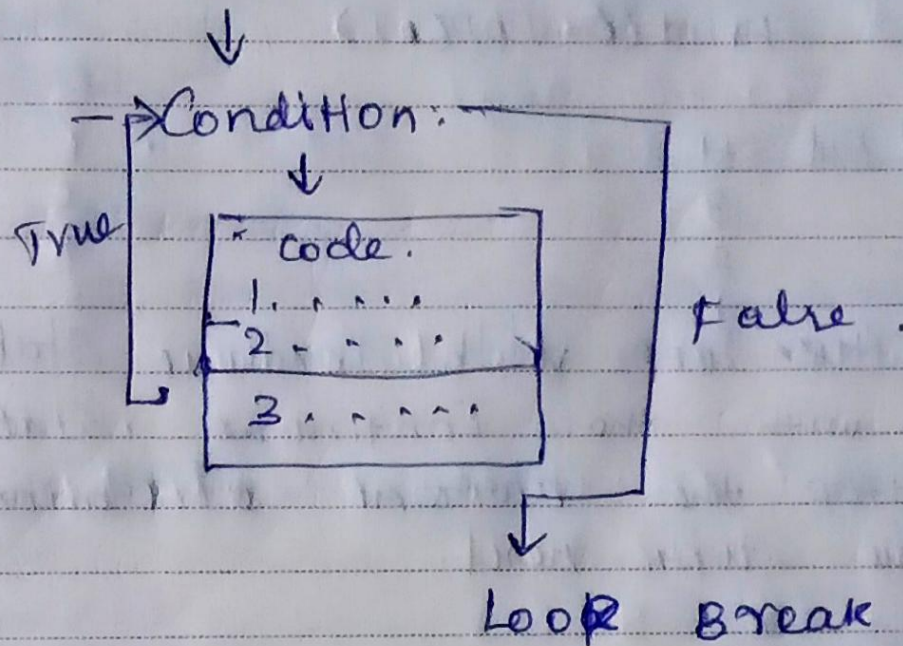 Condition:
True
code.
1. . . . . .
2 - . . . .
False.
3 . . . . . .
Loop Break